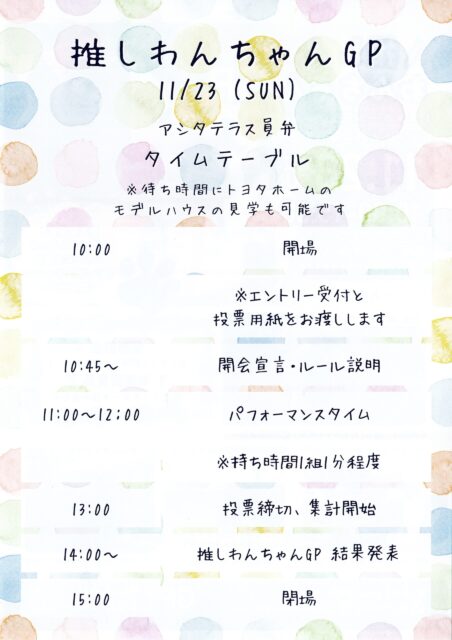 推しわんちゃんGP
11/23 (SUN)
アシタテラス員弁
タイムテーブル
※待ち時間にトヨタホームの
モデルハウスの見学も可能です
10:00 開場
※エントリー受付と
投票用紙をお渡しします
10:45～ 開会宣言・ルール説明
11:00～12:00 パフォーマンスタイム
※持ち時間1組1分程度
13:00 投票締切、集計開始
14:00～ 推しわんちゃんGP 結果発表
15:00 閉場